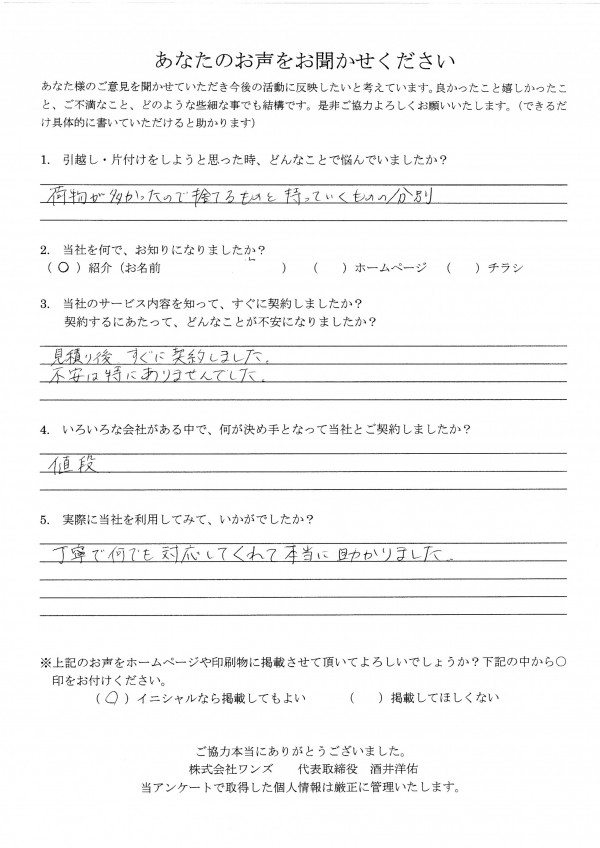 あなたのお声をお聞かせください
あなた様のご意見を聞かせていただき今後の活動に反映したいと考えています。良かったこと嬉しかったこ
と、ご不満なこと、どのような些細な事でも結構です。是非ご協力よろしくお願いいたします。（できるだ
け具体的に書いていただけると助かります）
1. 引越し・片付けをしようと思った時、どんなことで悩んでいましたか？
荷物が多かったので捨てるものと持っていくものの分別
2. 当社を何で、お知りになりましたか？
（○）紹介（お名前 ） （ ）ホームページ （ ）チラシ
3. 当社のサービス内容を知って、すぐに契約しましたか？
契約するにあたって、どんなことが不安になりましたか？
見積り後、すぐに契約しました。
不安は特にありませんでした。
4. いろいろな会社がある中で、何が決め手となって当社とご契約しましたか？
値段
5. 実際に当社を利用してみて、いかがでしたか？
丁寧で何でも対応してくれて本当に助かりました。
※上記のお声をホームページや印刷物に掲載させて頂いてよろしいでしょうか？下記の中から○
印をお付けください。
（○）イニシャルなら掲載してもよい （ ）掲載してほしくない
ご協力本当にありがとうございました。
株式会社ワンズ 代表取締役 酒井洋佑
当アンケートで取得した個人情報は厳正に管理いたします。